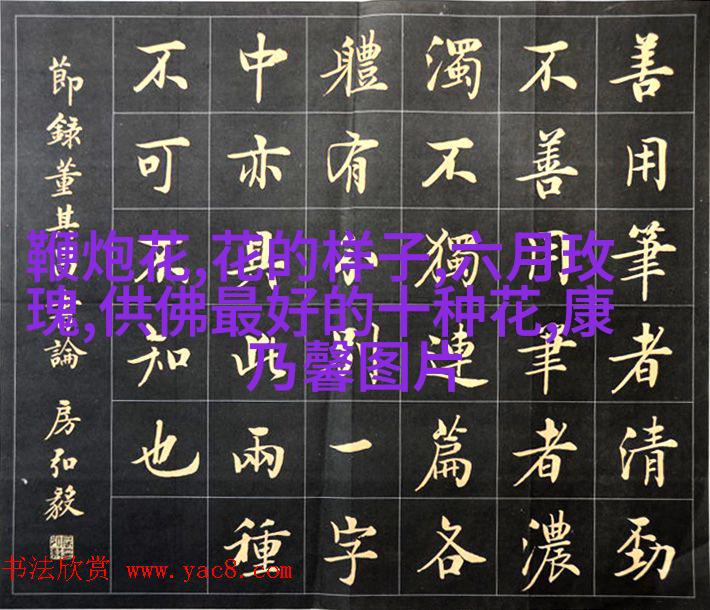 善用筆者清勁
不善用筆者濃
濁不獨連篇各
體有分別一字
中亦具此兩種
不可不知也
節錄董其昌書論 房弘毅
鞭炮花,花的样子,六月玫
瑰,供佛最好的十种花,康
乃馨图片
书法欣赏 www.yac8.com